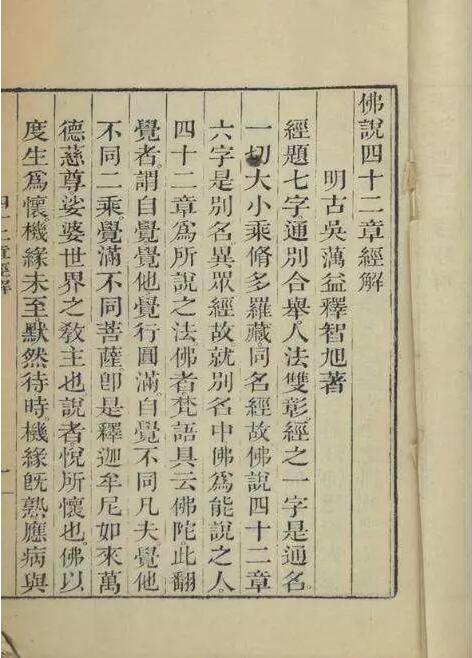 佛說四十二章經解
明古吳蕅益釋智旭著
經題七字通別合舉人法雙彰經之一字是通名。
一切大小乘脩多羅藏同名經故佛說四十二章
六字是別名異眾經故就別名中佛為能說之人。
四十二章為所說之法。佛者梵語具云佛陀。此翻
覺者。謂自覺覺他覺行圓滿。自覺不同凡夫。覺他
不同二乘。覺滿不同菩薩。卽是釋迦牟尼如來萬
德慈尊娑婆世界之教主也。說者悅所懷也。佛以
度生爲懷。機緣未至默然待時。機緣旣熟應病與
四十二章經解
一